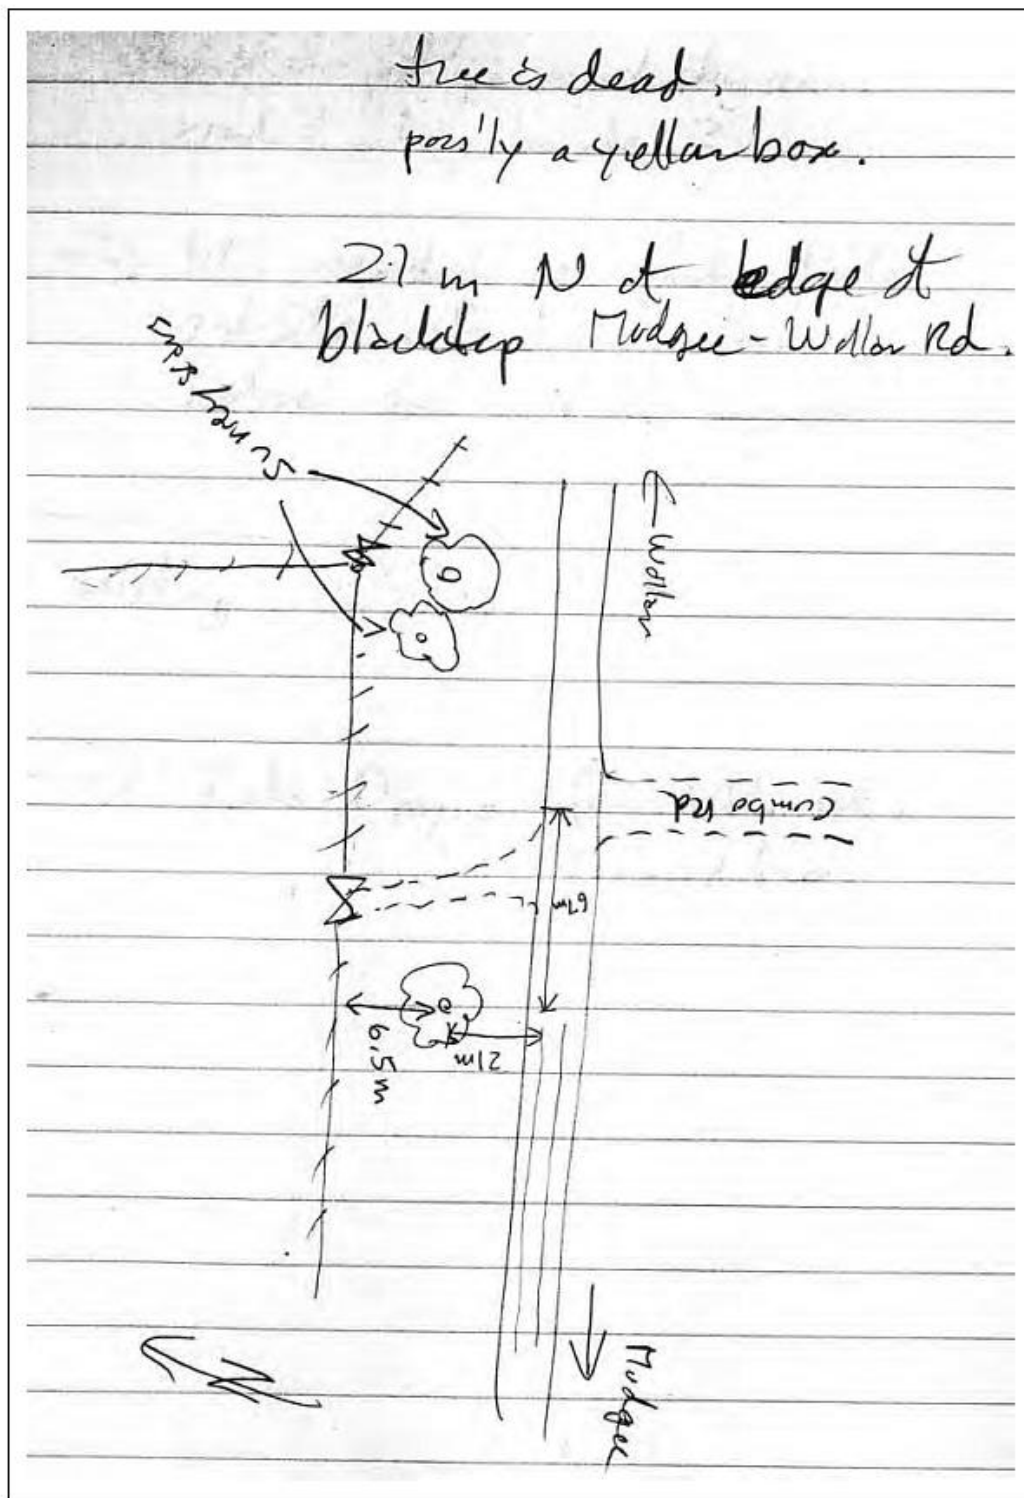 tree is dead,
poss'ly a yellow box.
21 m N of edge of
blacktop Mudgee - Wollar Rd.
← Wollar
Cumbo Rd
67m
6.5m
21m
Mudgee
N